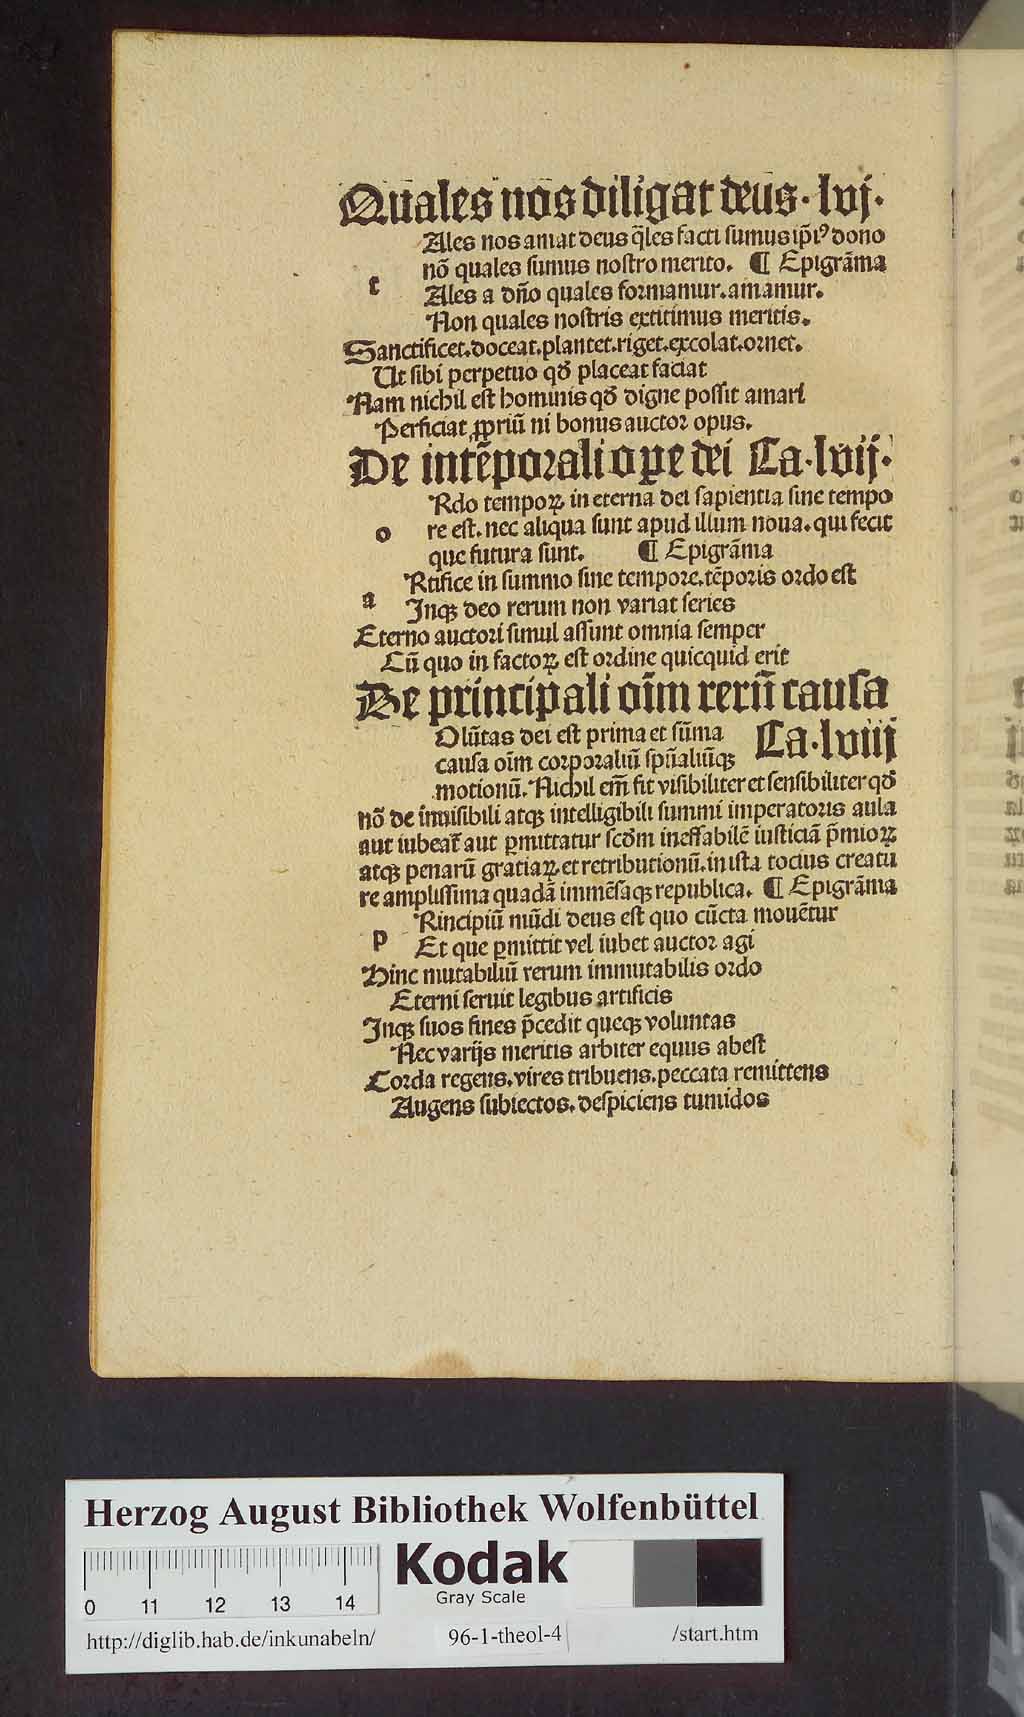 Quales nos diligat deus. lvj.
Ales nos amat deus q̄les facti sumus ip̄iꝰ dono
nō quales sumus nostro merito. ¶ Epigrāma
t Ales a dn̄o quales formamur. amamur.
Non quales nostris extitimus meritis.
Sanctificet. doceat. plantet. riget. excolat. ornet.
Ut sibi perpetuo qđ placeat faciat
Nam nichil est hominis qđ digne possit amari
Perficiat ꝓpriū ni bonus auctor opus.
De intēporali ope dei Ca. lvij.
Rdo tempoꝝ in eterna dei sapientia sine tempo
o re est. nec aliqua sunt apud illum noua. qui fecit
que futura sunt. ¶ Epigrāma
Rtifice in summo sine tempore. tēporis ordo est
a Inqꝫ deo rerum non variat series
Eterno auctori simul assunt omnia semper
Cū quo in factoꝝ est ordine quicquid erit
De principali oīm rerū causa
Ca. lviij
Olūtas dei est prima et sūma
causa oīm corporaliū spūaliūqꝫ
motionū. Nichil em̄ fit visibiliter et sensibiliter qđ
nō de inuisibili atqꝫ intelligibili summi imperatoris aula
aut iubeat̄ aut ꝑmittatur scđm ineffabilē iusticiā p̄mioꝝ
atqꝫ penarū gratiaꝝ et retributionū. in ista tocius creatu
re amplissima quadā immēsaqꝫ republica. ¶ Epigrāma
Rincipiū mūdi deus est quo cūcta mouētur
p Et que ꝑmittit vel iubet auctor agi
Hinc mutabiliū rerum immutabilis ordo
Eterni seruit legibus artificis
Inqꝫ suos fines p̄cedit queqꝫ voluntas
Nec varijs meritis arbiter equus abest
Corda regens. vires tribuens. peccata remittens
Augens subiectos. despiciens tumidos
Herzog August Bibliothek Wolfenbüttel
Kodak
Gray Scale
0 11 12 13 14
http://diglib.hab.de/inkunabeln/ 96-1-theol-4 /start.htm